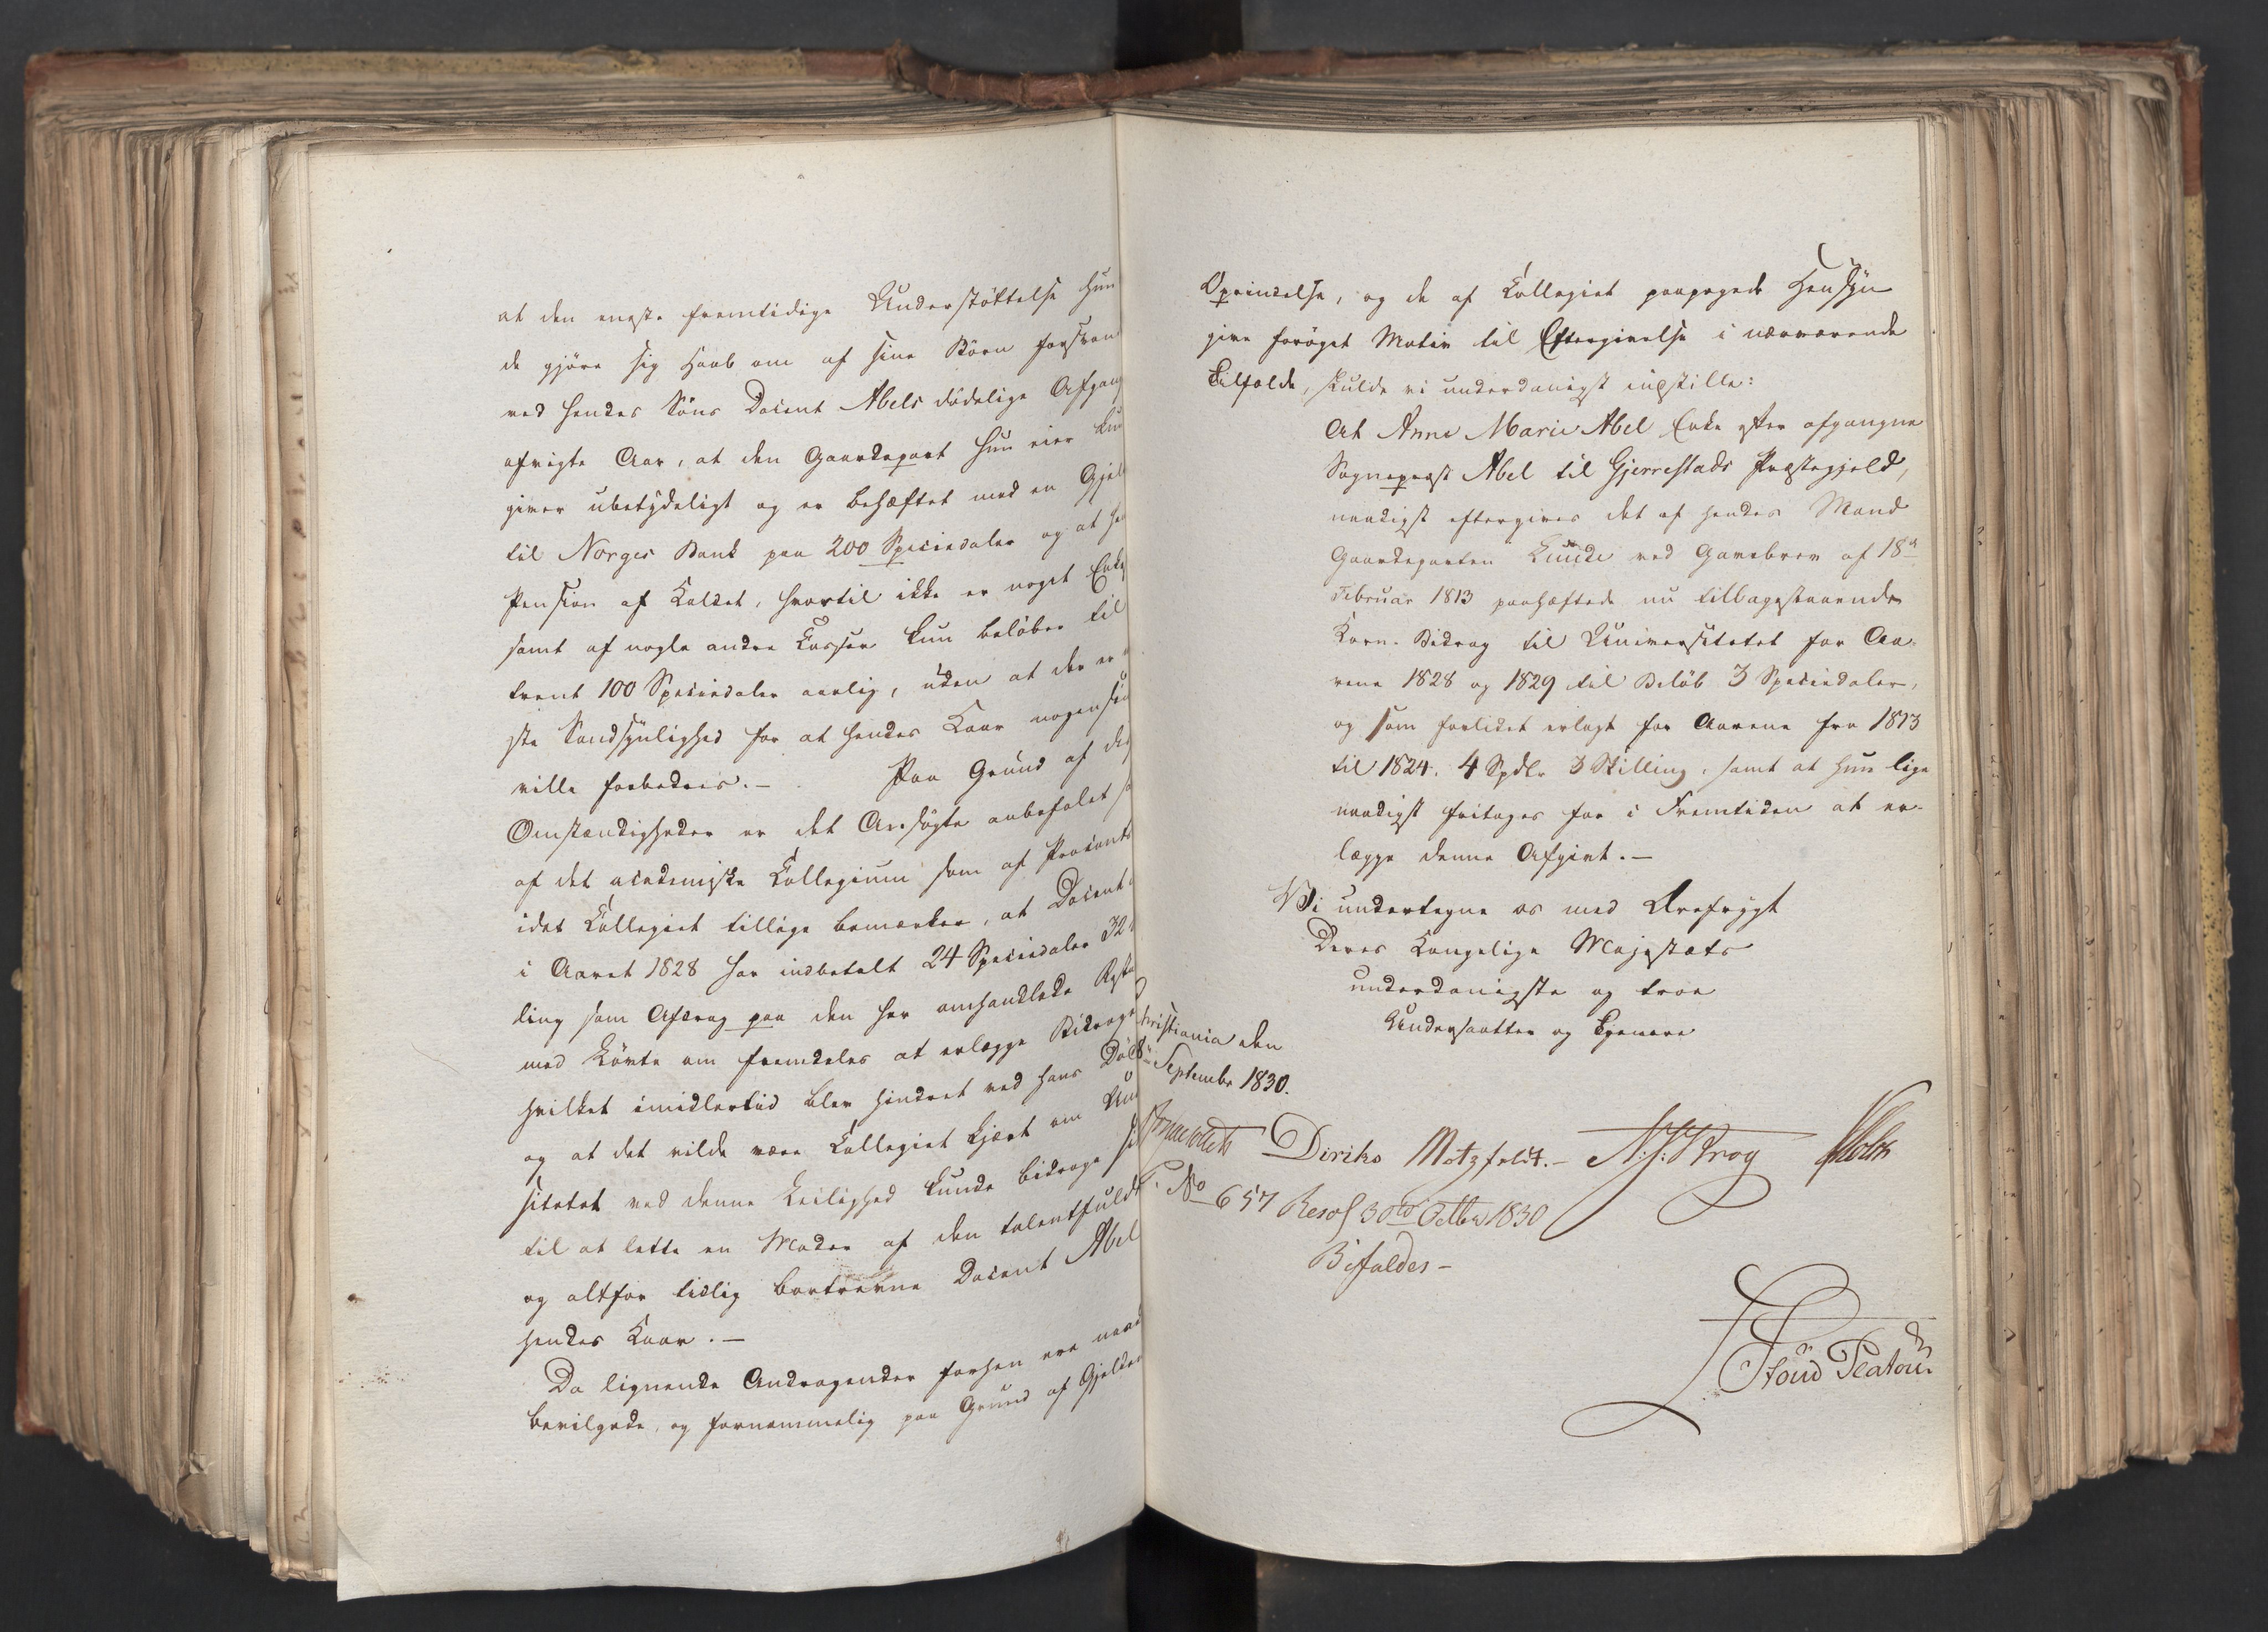 at den eneste fremtidige Understøttelse hun
de gjöre sig Haab om af sine Börn forsvan
ved hendes Söns Docent Abels dödelige Afgang
afvigte Aar, at den Gaardepart hun eier kun
giver ubetydeligt og er behæftet med en Gjel
til Norges Bank paa 200 Speciedaler og at he
Pension af Kaldet, hvortil ikke er noget Enke
samt af nogle andre Kasser kun belöber til
trent 100 Speciedaler aarlig, uden at der er
ste Sandsynlighed for at hendes Kaar nogensin
ville forbedres. – Paa Grund af dis
Omstændigheder er det Ansögte anbefalet s
af det academiske Collegium som af Procants
idet Collegiet tillige bemærker, at Docent
i Aaret 1828 har indbetalt 24 Speciedaler 32
ling som Afdrag paa den her omhandlede Resta
med Löfte om fremdeles at erlægge Bidraget
hvilket imidlertid blev hindret ved hans Död
og at det vilde være Collegiet kjært om Uni
sitetet ved denne Leilighed kunde bidrage sit
til at lette en Moder af den talentfulde
og altfor tidlig bortrevne Docent Abel
hendes Kaar. –
Da lignende Andragender forhen ere naad
bevilgede, og fornemmelig paa Grund af Gjelden
Oprindelse, og de af Collegiet paapegede Hensyn
give foröget Motiv til Eftergivelse i nærværende
Tilfælde, skulde vi underdanigst indstille:
At Anne Marie Abel Enke efter afgangne
Sogneprest Abel til Gjerrestads Præstegjeld,
naadigst eftergives det af hendes Mand
Gaardeparten Lunde ved Gavebrev af 18de
Februar 1813 paahæftede nu tilbagestaaende
Korn-Bidrag til Universitetet for Aa-
rene 1828 og 1829 til Belöb 3 Speciedaler,
og som forlidet erlagt for Aarene fra 1813
til 1824. 4 Spdlr 3 Skilling, samt at hun lige
naadigst fritages for i Fremtiden at er-
lægge denne Afgivt. –
Vi undertegne os med Ærefrygt
Deres Kongelige Majestæts
underdanigste og troe
Undersaatter og Tjenere
hristiania den
8de September 1830.
Diriks Motzfeldt. – N. J. Krog Holst
No 657 Resol 30te Octbr 1830
Bifaldes –